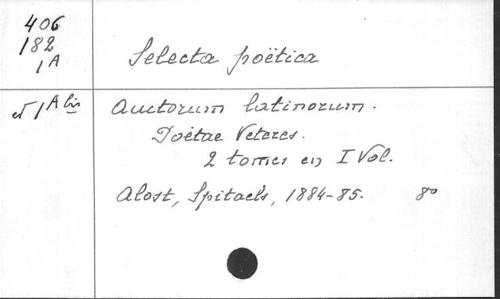 406
182
1A
Selecta poëtica
et 1A bis
Auctorum latinorum.
Poëtae Veteres.
2 tomes en I Vol.
Alost, Spitaels, 1884-85. 8o